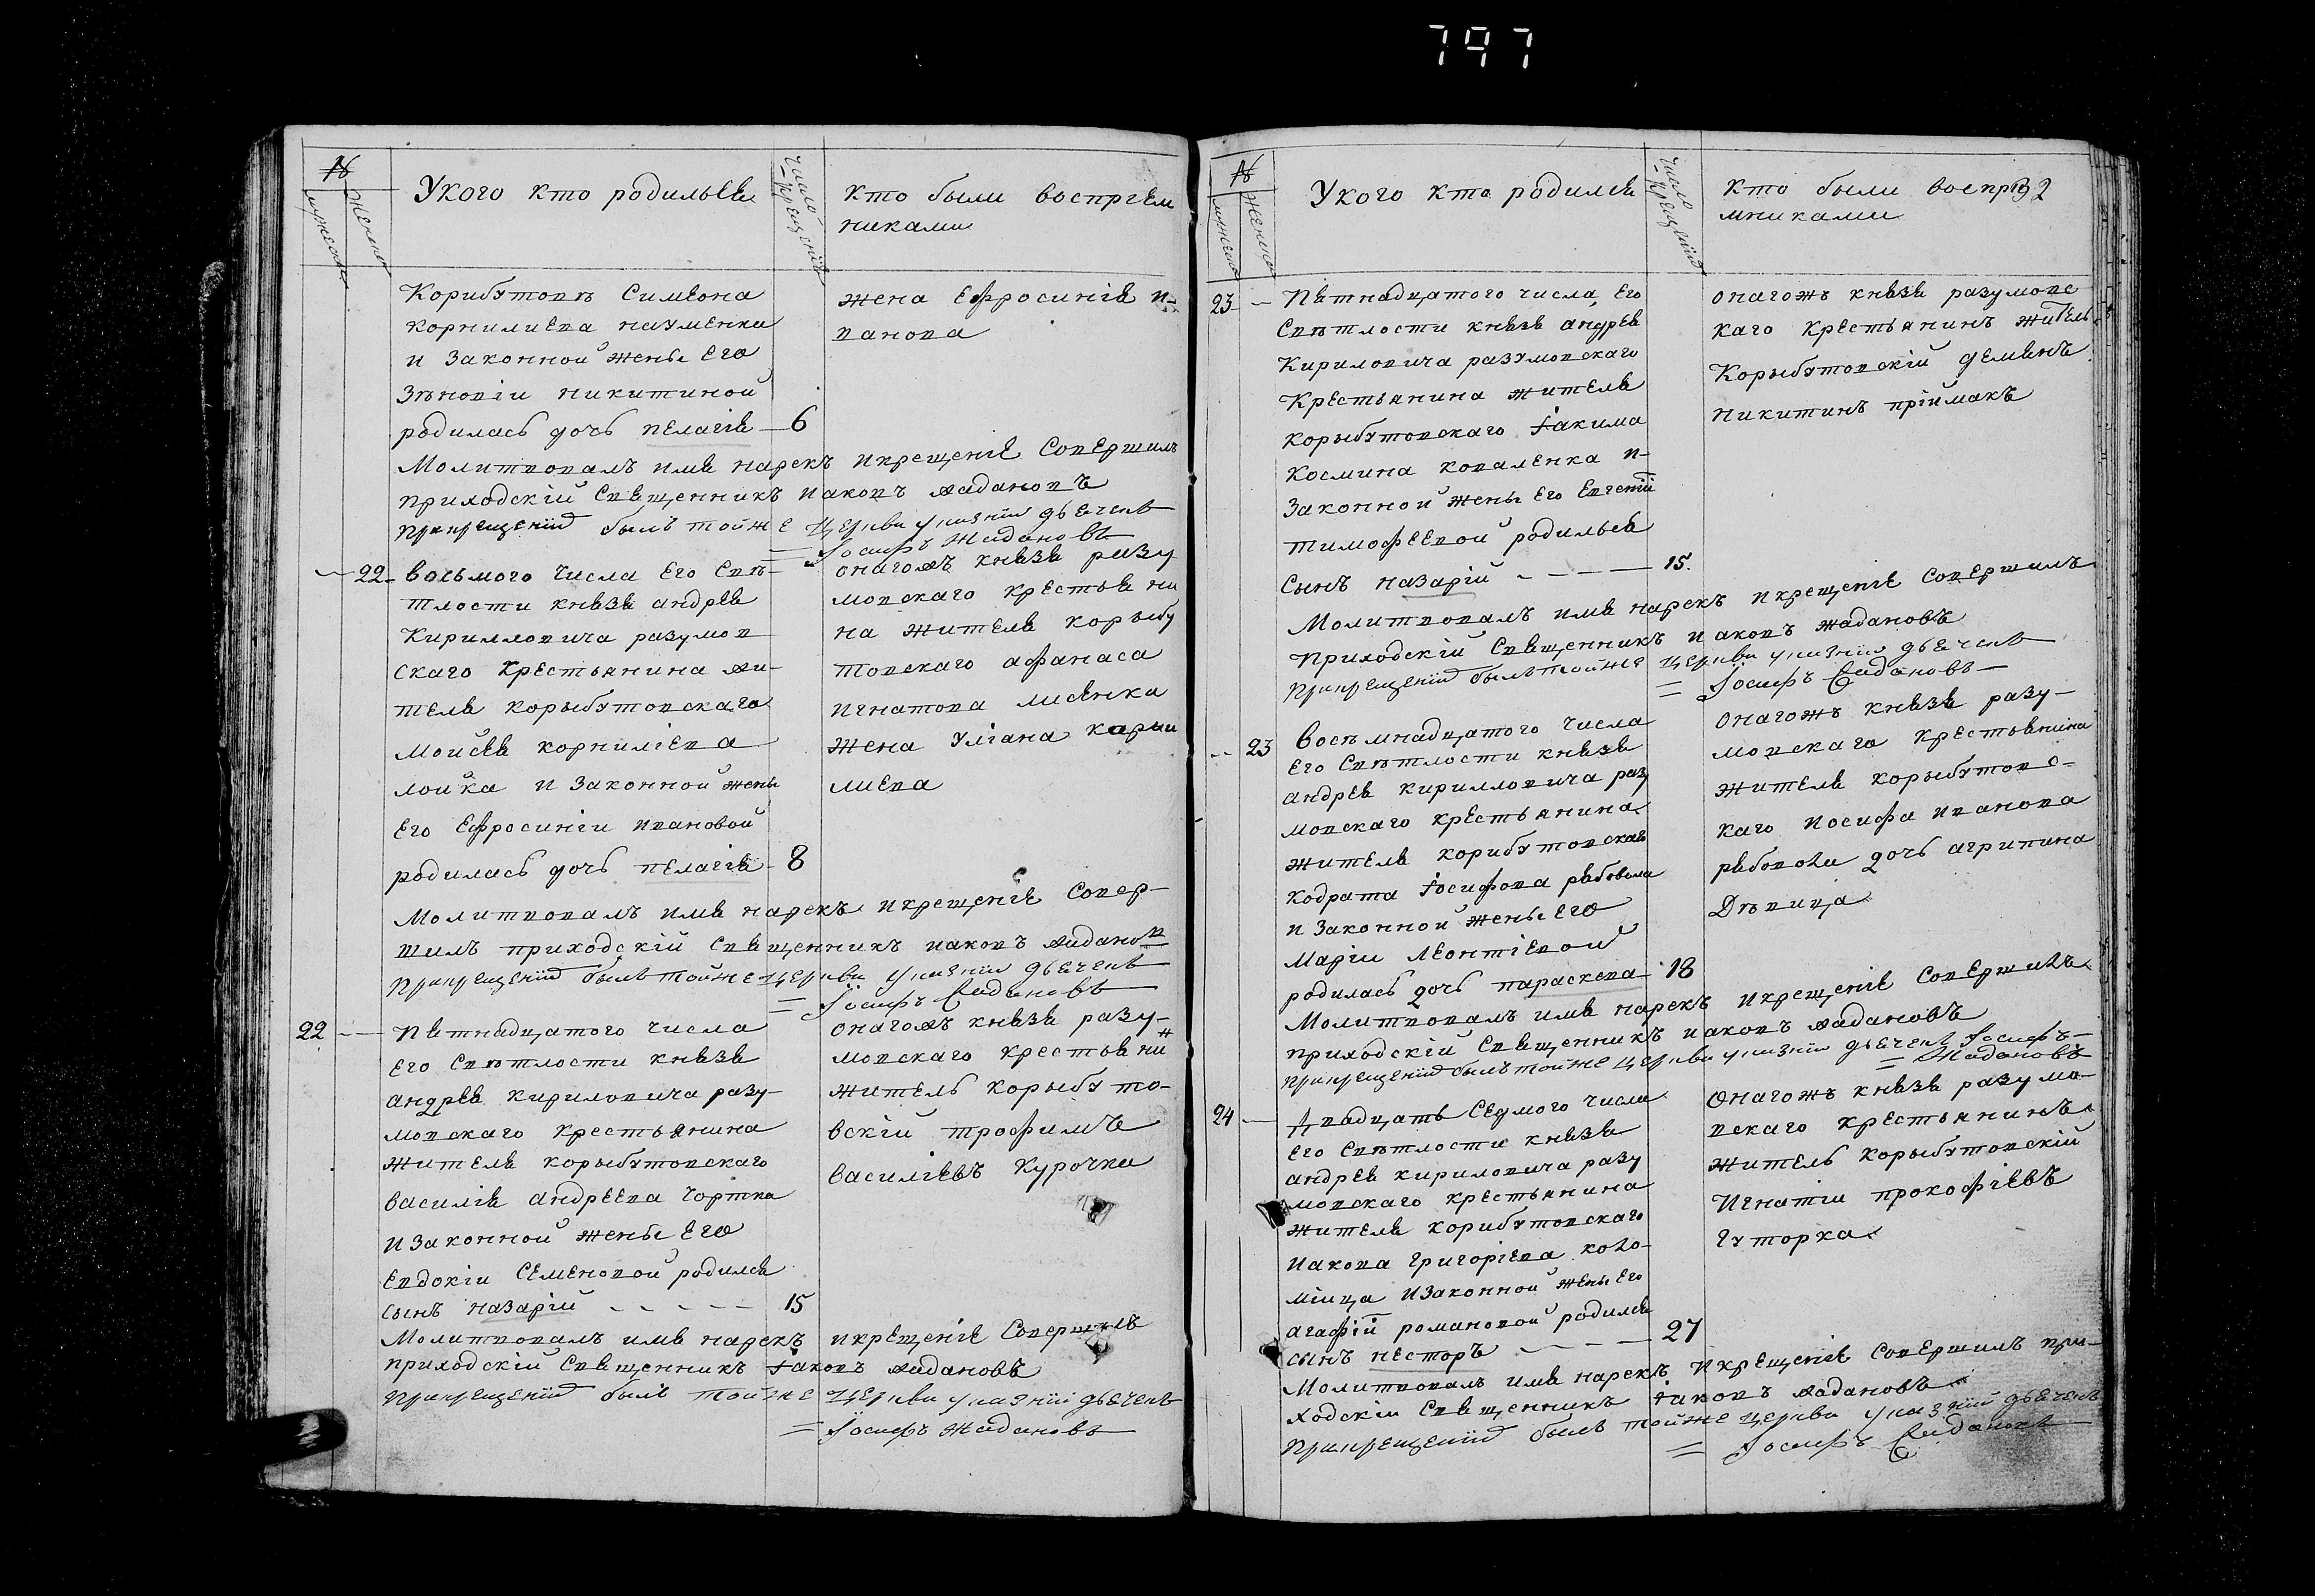 797
№
мужеска
женска
Укого кто родилься
число крещенія
кто были воспріем
никами
Корибутовъ Симеона
корнилиева науменка
и Законной жены Его
Зѣновіи никитиной
родилась дочь пелагія — 6
жена Ефросинія и-
ванова
Молитвовалъ имя нарекъ икрещеніе Совершилъ
приходскій Священникъ иаковъ жадановъ
Прикрещеніи былъ тойже церкви указній дьячекъ
= Іосифъ Жадановъ
22 Восьмого числа Его Свѣ-
тлости князя андрея
Кирилловича разумов
скаго Крестьянина жи-
теля корыбутовскаго
Мойсея корниліева
лойка и Законной жены
Его Ефросиніи ивановой
родилась дочь пелагія — 8
онагожъ князя разу
мовскаго крестьяни
на жителя корыбу
товскаго афанаса
игнатова лисенка
жена Уліана корни
лиева
Молитвовалъ имя нарекъ икрещеніе Совер-
шилъ приходскій Священникъ иаковъ жаданов
Прикрещеніи былъ тойже церкви указній дьячекъ
= Іосифъ Жадановъ
22 — Пятнадцатого числа
Его Свѣтлости князя
андрея кириловича разу-
мовскаго крестьянина
жителя корыбутовскаго
василія андреева Чортка
и Законной жены Его
Евдокіи Семеновой родился
сынъ назарій — 15
онагожъ князя разу-
мовскаго крестьяни
житель корыбуто-
вскій трофимъ
василіевъ Курочка
Молитвовалъ имя нарекъ икрещеніе Совершилъ
приходскій Священникъ іаковъ жадановъ
Прикрещеніи былъ тойже церкви указній дьячекъ
= Іосифъ Жадановъ
№
мужеска
женска
Укого кто родился
число крещенія
кто были воспріе
мниками
92
23 — Пятнадцатого числа Его
Свѣтлости князя андрея
Кириловича разумовскаго
Крестьянина жителя
корыбутовскаго іакима
Космина коваленка и-
Законной жены Его Евгеніи
тимофеевой родилься
Сынъ назарій — 15.
онагожъ князя разумовс
каго крестьянинъ житель
Корыбутовскій демянъ
никитинъ пріймакъ
Молитвовалъ имя нарекъ икрещеніе Совершилъ
приходскій Священникъ иаковъ жадановъ
Прикрещеніи былъ тойже церкви указній дьячекъ
= Іосифъ Жадановъ
23 Восѣмнадцатого числа
Его Свѣтлости князя
андрея кирилловича разу
мовскаго крестьянина
жителя корибутовскаго
кодрата іосифова рябовола
и Законной жены Его
Маріи Леонтіевой
родилась дочь параскева — 18
онагожъ князя разу-
мовскаго крестьянина
жителя корыбутовс-
каго иосифа иванова
рябовола дочь агрипина
Дѣвица
Молитвовалъ имя нарекъ икрещеніе Совершилъ
приходскій Священникъ иаковъ жадановъ
Прикрещеніи былъ тойже церкви указній дьячекъ Іосифъ
= Жадановъ
24 — Двадцать Седмого числа
Его Свѣтлости князя
андрея кириловича разу
мовскаго крестьянина
жителя корибутовскаго
иакова григоріева коло-
мійца иЗаконной жены Его
агафіи романовой родился
сынъ несторъ — 27
Онагожъ князя разумо-
вскаго крестьянинъ
житель корыбутовскій
Игнатіи прокофіевъ
Гуторка
Молитвовалъ имя нарекъ икрещеніе Совершилъ при-
ходскіи Священникъ іаковъ жадановъ
Прикрещеніи былъ тойже церкви указній дьячекъ
= Іосифъ Жадановъ